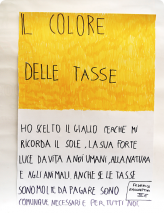 IL COLORE
DELLE TASSE
HO SCELTO IL GIALLO PERCHÉ MI
RICORDA IL SOLE, LA SUA FORTE
LUCE DA VITA A NOI UMANI, ALLA NATURA
E AGLI ANIMALI. ANCHE SE LE TASSE
SONO MOLTE DA PAGARE SONO
COMUNQUE NECESSARIE PER TUTTI NOI.
FEDERICO